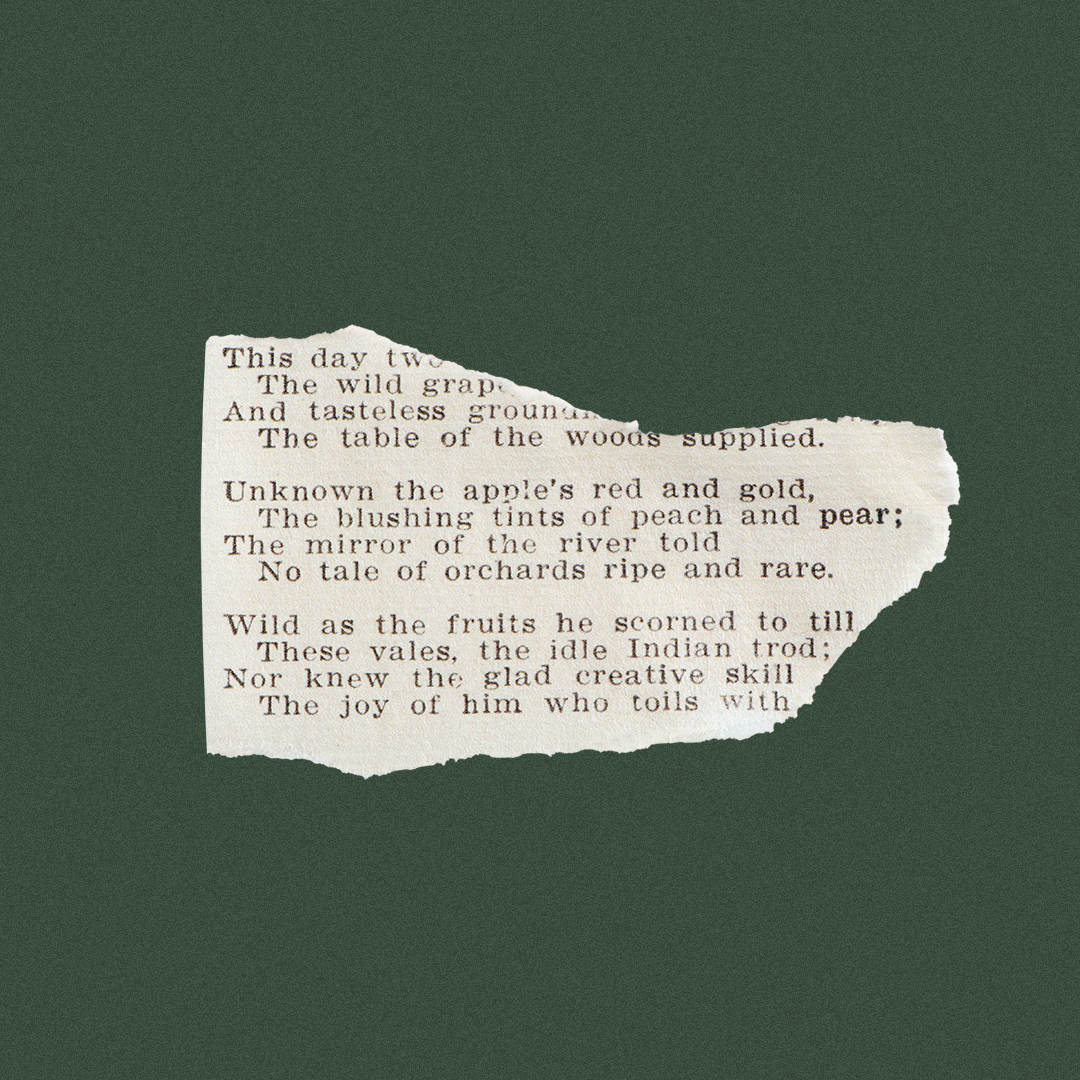 This day
The wild
And tasteless
The table of the woods supplied.
Unknown the apple's red and gold,
The blushing tints of peach and pear;
The mirror of the river told
No tale of orchards ripe and rare.
Wild as the fruits he scorned to till
These vales, the idle Indian trod;
Nor knew the glad creative skill
The joy of him who toils with